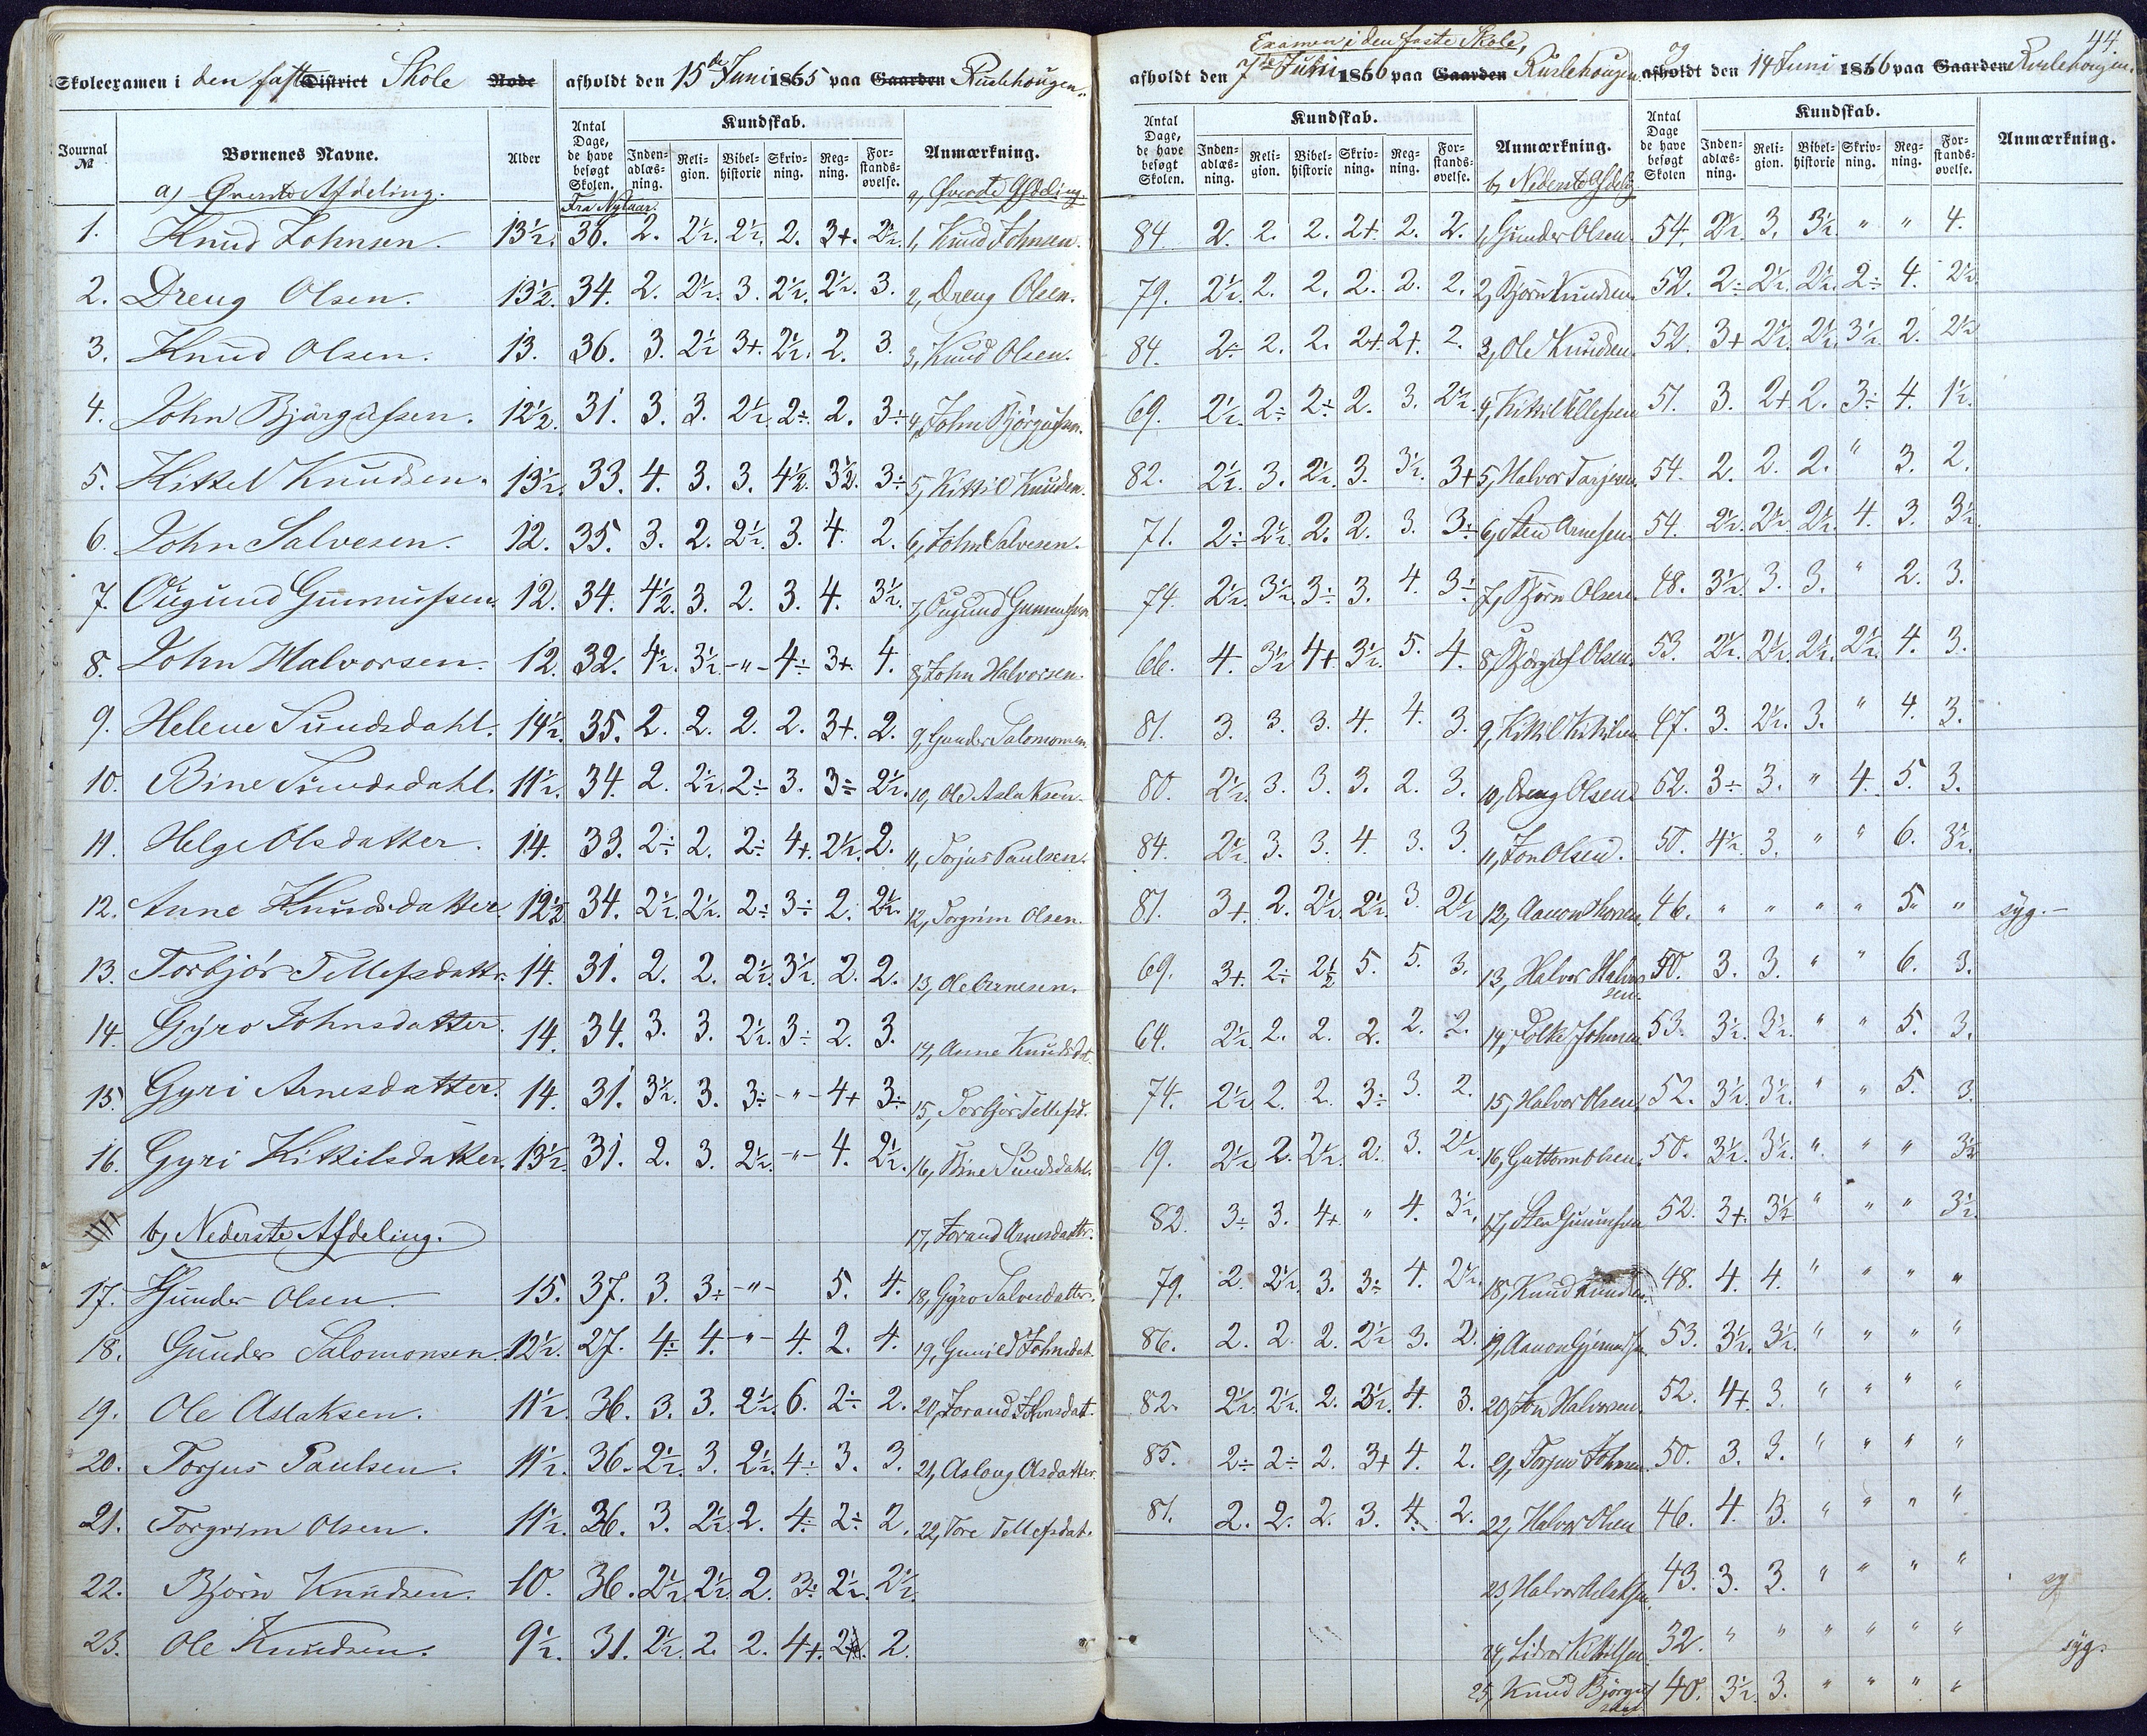 44.
Skoleexamen i den faste District Skole Rode afholdt den 15de Juni 1865 paa Gaarden Ruslehougen.
Journal № Børnenes Navne. Alder Antal Dage, de have besøgt Skolen. Kundskab. Inden-adlæs-ning. Reli-gion. Bibel-historie Skriv-ning. Reg-ning. For-stands-øvelse. Anmærkning.
a) Øverste Afdeling. Fra Nytaar. a, Øverste Afdeling.
1. Knud Johnsen. 13½. 36. 2. 2½. 2½. 2. 3+. 2½. 1, Knud Johnsen.
2. Dreng Olsen. 13½. 34. 2. 2½. 3. 2½. 2½. 3. 2, Dreng Olsen.
3. Knud Olsen. 13. 36. 3. 2½ 3+. 2½. 2. 3. 3, Knud Olsen.
4. John Bjørgufsen. 12½. 31. 3. 3. 2½. 2÷. 2. 3÷ 4, John Bjørgufsen.
5. Kittel Knudsen. 13½. 33. 4. 3. 3. 4½. 3½. 3÷ 5, Kittil Knudsen.
6. John Salvesen. 12. 35. 3. 2. 2½. 3. 4. 2. 6, John Salvesen.
7. Ougund Gunnufsen. 12. 34. 4½. 3. 2. 3. 4. 3½. 7, Ougund Gunnufsen
8. John Halvorsen. 12. 32. 4½. 3½. -"- 4÷ 3+. 4. 8, John Halvorsen.
9. Helene Sundsdahl. 14½. 35. 2. 2. 2. 2. 3+. 2. 9, Gunder Salomonsen
10. Bine Sundsdahl. 11½. 34. 2. 2½. 2÷ 3. 3÷ 2½. 10, Ole Aslaksen.
11. Helge Olsdatter. 14. 33. 2÷ 2. 2÷ 4+. 2½. 2. 11, Torjus Paulsen.
12. Anne Knudsdatter. 12½ 34. 2½. 2½. 2÷ 3÷ 2. 2½. 12, Torgrim Olsen.
13. Torbjør Tellefsdattr. 14. 31. 2. 2. 2½. 3½. 2. 2. 13, Ole Arnesen.
14. Gyro Johnsdatter. 14. 34. 3. 3. 2½. 3÷ 2. 3. 14, Anne Knudsdat.
15. Gyri Arnesdatter. 14. 31. 3½. 3. 3÷ -"- 4+ 3÷ 15, Torbjør Tellefsd.
16. Gyri Kittilsdatter. 13½. 31. 2. 3. 2½. -"- 4. 2½. 16, Bine Sundsdahl.
b, Nederste Afdeling. 17, Jorand Arnesdattr.
17. Gunder Olsen 15. 37. 3. 3÷ -"- 5. 4. 18, Gyro Salvesdatter.
18. Gunder Salomonsen. 12½. 27. 4÷ 4. -"- 4. 2. 4. 19, Gunild Johnsdat.
19. Ole Aslaksen. 11½. 36. 3. 3. 2½. 6. 2÷ 2. 20, Jorand Johnsdatt.
20. Torjus Paulsen. 11½. 36. 2½. 3. 2½. 4÷ 3. 3. 21, Aslaug Olsdatter.
21. Torgrim Olsen. 11½. 36. 3. 2½. 2. 4÷ 2÷ 2. 22, Tore Tellefsdat.
22. Bjørn Knudsen. 10. 36. 2½. 2½. 2. 3÷ 2½. 2½.
23. Ole Knudsen. 9½. 31. 2½. 2. 2. 4+. 2. 2.
Examen i den faste Skole,
afholdt den 7de Juni 1866 paa Gaarden Ruslehougen. og afholdt den 14 Juni 1866 paa Gaarden Ruslehougen.
Antal Dage, de have besøgt Skolen. Kundskab. Inden-adlæs-ning. Reli-gion. Bibel-historie Skriv-ning. Reg-ning. For-stands-øvelse. Anmærkning. Antal Dage de have besøgt Skolen Kundskab. Inden-adlæs-ning. Reli-gion. Bibel-historie Skriv-ning. Reg-ning. For-stands-øvelse. Anmærkning.
b, Nederste Afdelg.
84. 2. 2. 2. 2+. 2. 2. 1, Gunder Olsen. 54. 2½. 3. 3½. " " 4.
79. 2½. 2. 2. 2. 2. 2. 2, Bjørn Knudsen. 52. 2÷ 2½. 2½. 2÷ 4. 2½.
84. 2÷ 2. 2. 2+. 2+. 2. 3, Ole Knudsen. 52. 3+ 2½. 2½. 3½. 2. 2½
69. 2½. 2÷ 2÷ 2. 3. 2½. 4, Kittil Tellefsen 51. 3. 2+ 2. 3÷ 4. 1½.
82. 2½. 3. 2½. 3. 3½. 3+ 5, Halvor Tarjesen. 54. 2. 2. 2. " 3. 2.
71. 2÷ 2½. 2. 2. 3. 3÷ 6, Sten Arnesen 54. 2½. 2½. 2½. 4. 3. 3½.
74. 2½. 3½. 3÷ 3. 4. 3÷ 7, Bjørn Olsen. 48. 3½. 3. 3. " 2. 3.
66. 4. 3½ 4+ 3½. 5. 4. 8, Bjørguf Olsen. 53. 2½. 2½. 2½. 2½. 4. 3.
81. 3. 3. 3. 4. 4. 3. 9, Kittil Kittilsen 47. 3. 2½. 3. " 4. 3.
80. 2½. 3. 3. 3. 2. 3. 10, Dreng Olsen 52. 3÷ 3. " 4. 5. 3.
84. 2½. 3. 3. 4. 3. 3. 11, Jon Olsen. 50. 4½. 3. " " 6. 3½.
81. 3+. 2. 2½. 2½. 3. 2½ 12, Aanon 46. " " " " 5. " syg.-
69. 3+. 2÷ 2½ 5. 5. 3. 13, Halvor Halvorsen. 50. 3. 3. " " 6. 3.
64. 2½. 2. 2. 2. 2. 2. 14, Folke Johnsen 53. 3½. 3½. " " 5. 3.
74. 2½. 2. 2. 3÷ 3. 2. 15, Halvor Olsen. 52. 3½. 3½. " " 5. 3.
19. 2½ 2. 2½. 2. 3. 2½. 16, Guttorm Olsen. 50. 3½. 3½. " " " 3½
82. 3÷ 3. 4+. " 4. 3½. 17, Sten Gunnufsen 52. 3+. 3½ " " " 3½.
79. 2. 2½. 3. 3÷ 4. 2½. 18, Knud Knudsen. 48. 4. 4. " " " "
86. 2. 2. 2. 2½ 3. 2. 19, Aanon 53. 3½. 3½. " " " "
82. 2½. 2½. 2. 3½. 4. 3. 20, Jon Halvorsen. 52. 4+. 3. " " " "
85. 2÷ 2÷ 2. 3+ 4. 2. 21, Torjus Johnsen 50. 3. 3. " " " "
81. 2. 2. 2. 3. 4. 2. 22, Halvor Olsen 46. 4. 3. " " " "
23, Halvor Aslaksen. 43. 3. 3. " " " "
24, Kittilsen. 32. " " " " " " syg.
25, Knud Bjørgufsen. 40. 3½. 3. " " " "